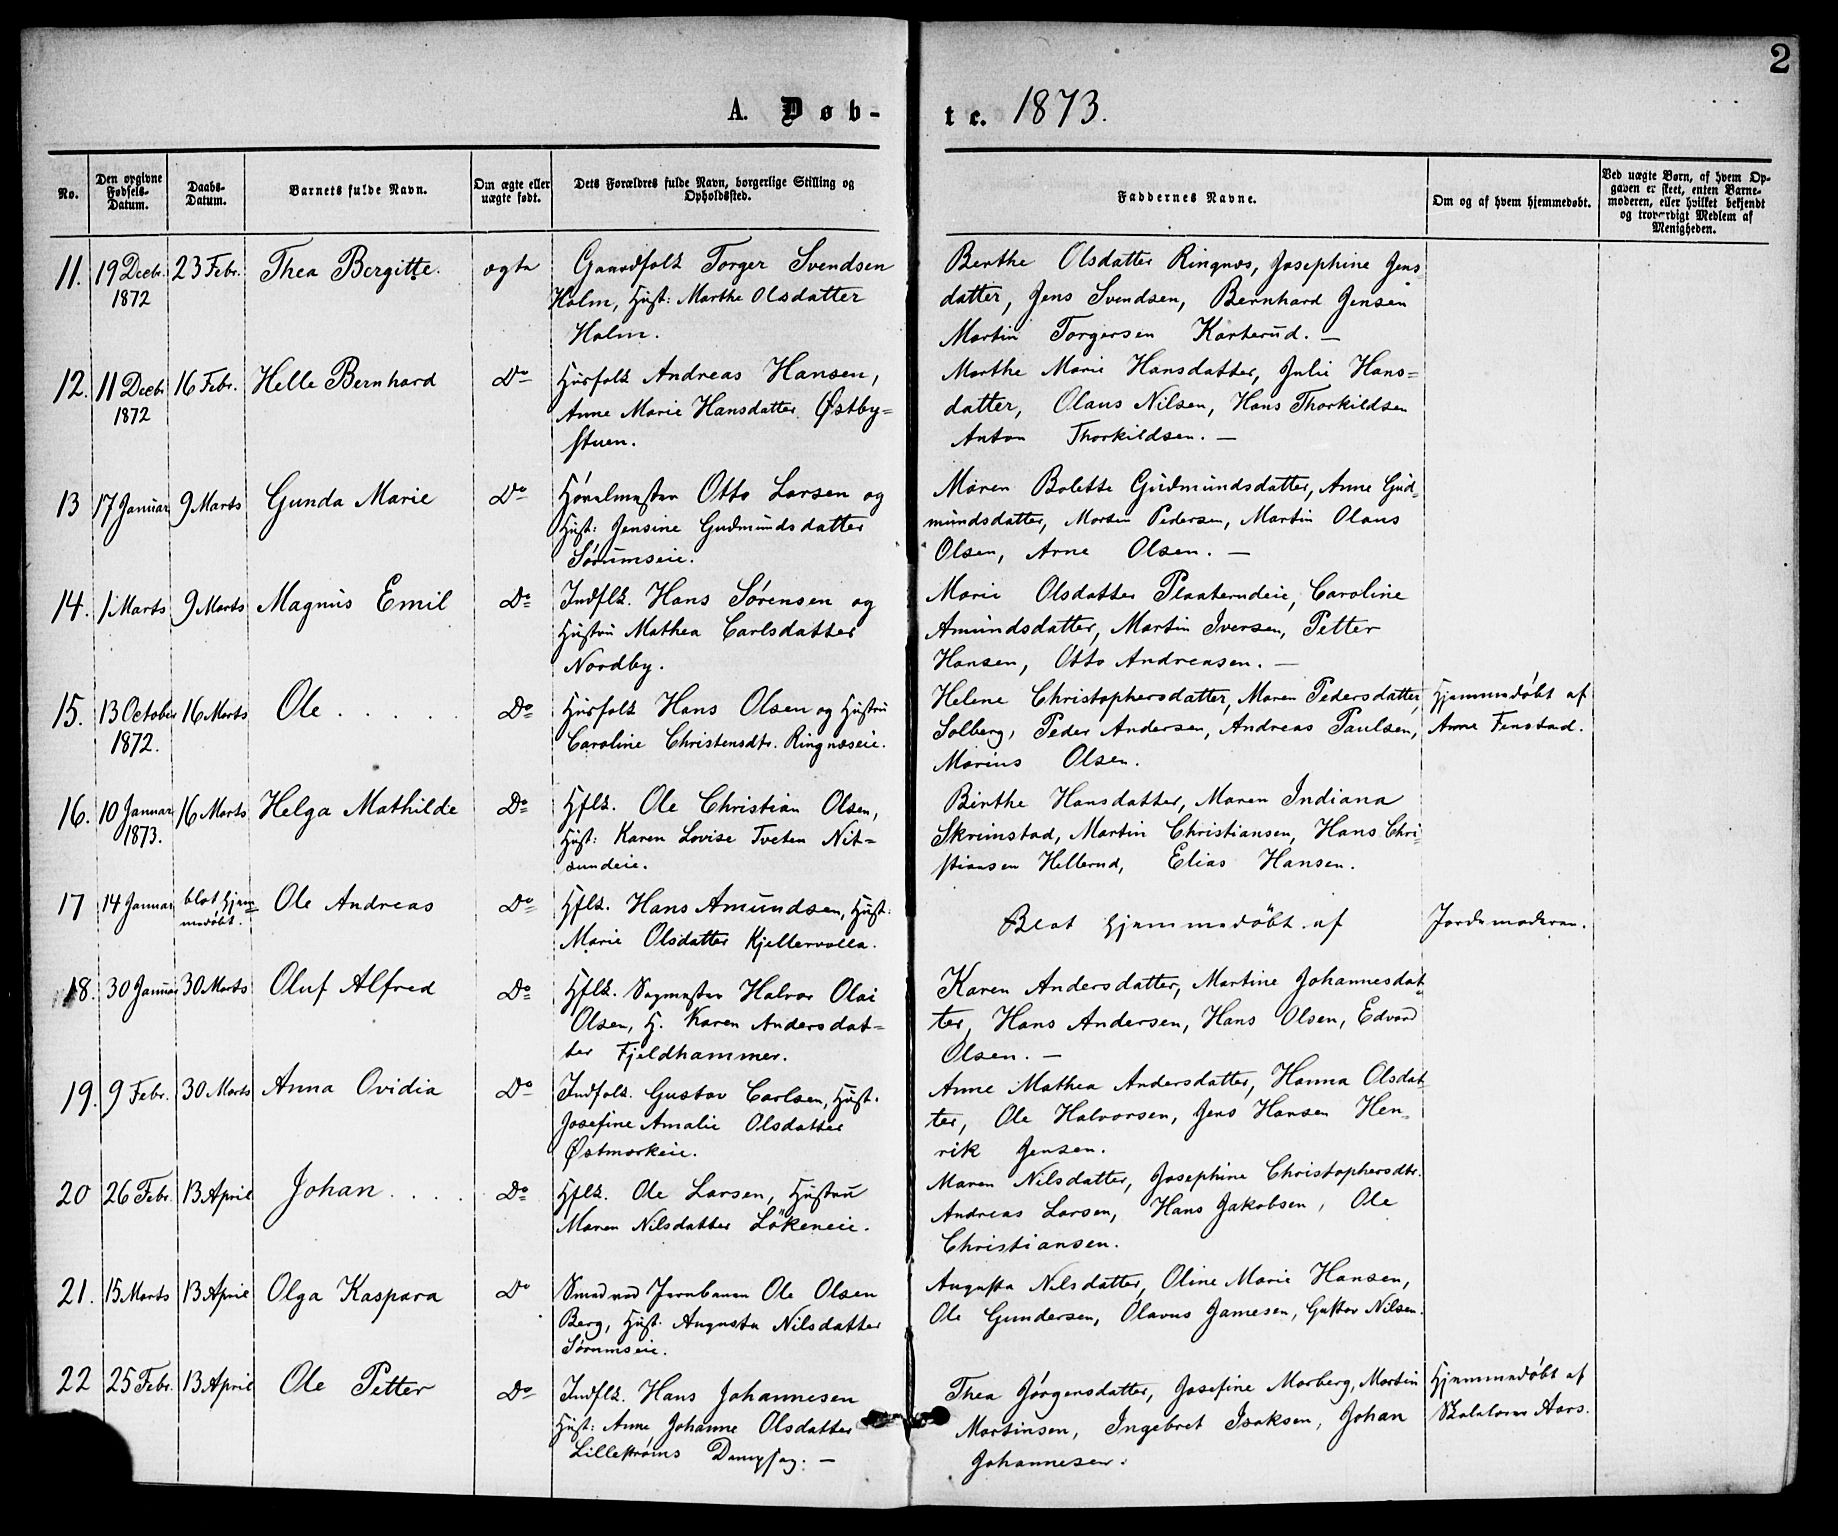 2
A. Døb-
te. 1873.
No.
Den opgivne Fødsels-Datum.
Daabs-Datum.
Barnets fulde Navn.
Om ægte eller uægte født.
Dets Forældres fulde Navn, borgerlige Stilling og Opholdssted.
Faddernes Navne.
Om og af hvem hjemmedøbt.
Ved uægte Børn, af hvem Opgaven er skeet, enten Barnemoderen, eller hvilket bekjendt og troværdigt Medlem af Menigheden.
11. 19 Decbr. 1872 23 Febr. Thea Bergitte. ægte
Gaardfolk Torger Svendsen
Holm, Hust: Marthe Olsdatter
Holm.
Berthe Olsdatter Ringnæs, Josephine Jens
datter, Jens Svendsen, Bernhard Jensen
Martin Torgersen Karterud. —
12. 11 Decbr 1872 16 Febr. Helle Bernhard Do
Husfolk Andreas Hansen,
Anne Marie Hansdatter Østby=
stuen.
Marthe Marie Hansdatter, Julie Hans=
datter, Olaus Nilsen, Hans Thorkildsen
Anton Thorkildsen. —
13 17 Januar 9 Marts Gunda Marie Do
Høvelmester Otto Larsen og
Hust: Jensine Gudmundsdatter
Sørumseie.
Maren Bolette Gudmundsdatter, Anne Gud=
mundsdatter, Morten Pedersen, Martin Olaus
Olsen, Arne Olsen. —
14. 1 Marts 9 Marts Magnus Emil Do
Indflk. Hans Sørensen og
Hustru Mathea Carlsdatter
Nordby.
Marie Olsdatter Plaaterudeie, Caroline
Amundsdatter, Martin Iversen, Petter
Hansen, Otto Andreasen. —
15. 13 October 1872. 16 Marts Ole . . . . . Do
Husfolk Hans Olsen og Hustru
Caroline Christensdtr. Ringnæseie.
Helene Christophersdatter, Maren Pedersdatter,
Solberg, Peder Andersen, Andreas Paulsen,
Marius Olsen.
Hjemmedøbt af
Arne Fenstad.
16. 10 Januar 1873. 16 Marts Helga Mathilde Do
Hflk. Ole Christian Olsen,
Hust: Karen Lovise Tveten Nit=
sundeie.
Birthe Hansdatter, Maren Indiana
Skrimstad, Martin Christiansen, Hans Chri=
stiansen Hellerud, Elias Hansen.
17 14 Januar blot hjem=medøbt. Ole Andreas Do
Hflk. Hans Amundsen, Hust:
Marie Olsdatter Kjellervolla.
Blot hjemmedøbt af Jordemoderen.
18. 30 Januar 30 Marts Oluf Alfred Do
Hflk. Sagmester Halvor Olai
Olsen, H. Karen Andersdat=
ter Fjeldhammer.
Karen Andersdatter, Martine Johannesdat=
ter, Hans Andersen, Hans Olsen, Edvard
Olsen. —
19. 9 Febr. 30 Marts Anna Ovidia Do
Indfolk. Gustav Carlsen, Hust.
Josefine Amalie Olsdatter
Østmorkeie.
Anne Mathea Andersdatter, Hanna Olsdat=
ter, Ole Halvorsen, Jens Hansen Hen=
rik Jensen.
20 26 Febr. 13 April Johan . . . . Do
Hflk. Ole Larsen, Hustru
Maren Nilsdatter Løkeneie.
Maren Nilsdatter, Josephine Christophersdtr.
Andreas Larsen, Hans Jakobsen, Ole
Christiansen.
21. 15 Marts 13 April Olga Kaspara Do
Smed ved Jernbanen Ole Olsen
Berg, Hust. Augusta Nilsdatter
Sørumseie.
Augusta Nilsdatter, Oline Marie Hansen,
Ole Gundersen, Olavus Jamesen, Gustav Nilsen.
22 25 Febr. 13 April Ole Petter Do
Indflk. Hans Johannesen
Hust: Anne Johanne Olsdatter
Lillestrøms Dampsag. —
Thea Jørgensdatter, Josefine Morberg, Martin
Martinsen, Ingebret Isaksen, Johan
Johannesen.
Hjemmedøbt af
Skolelærer Aars.